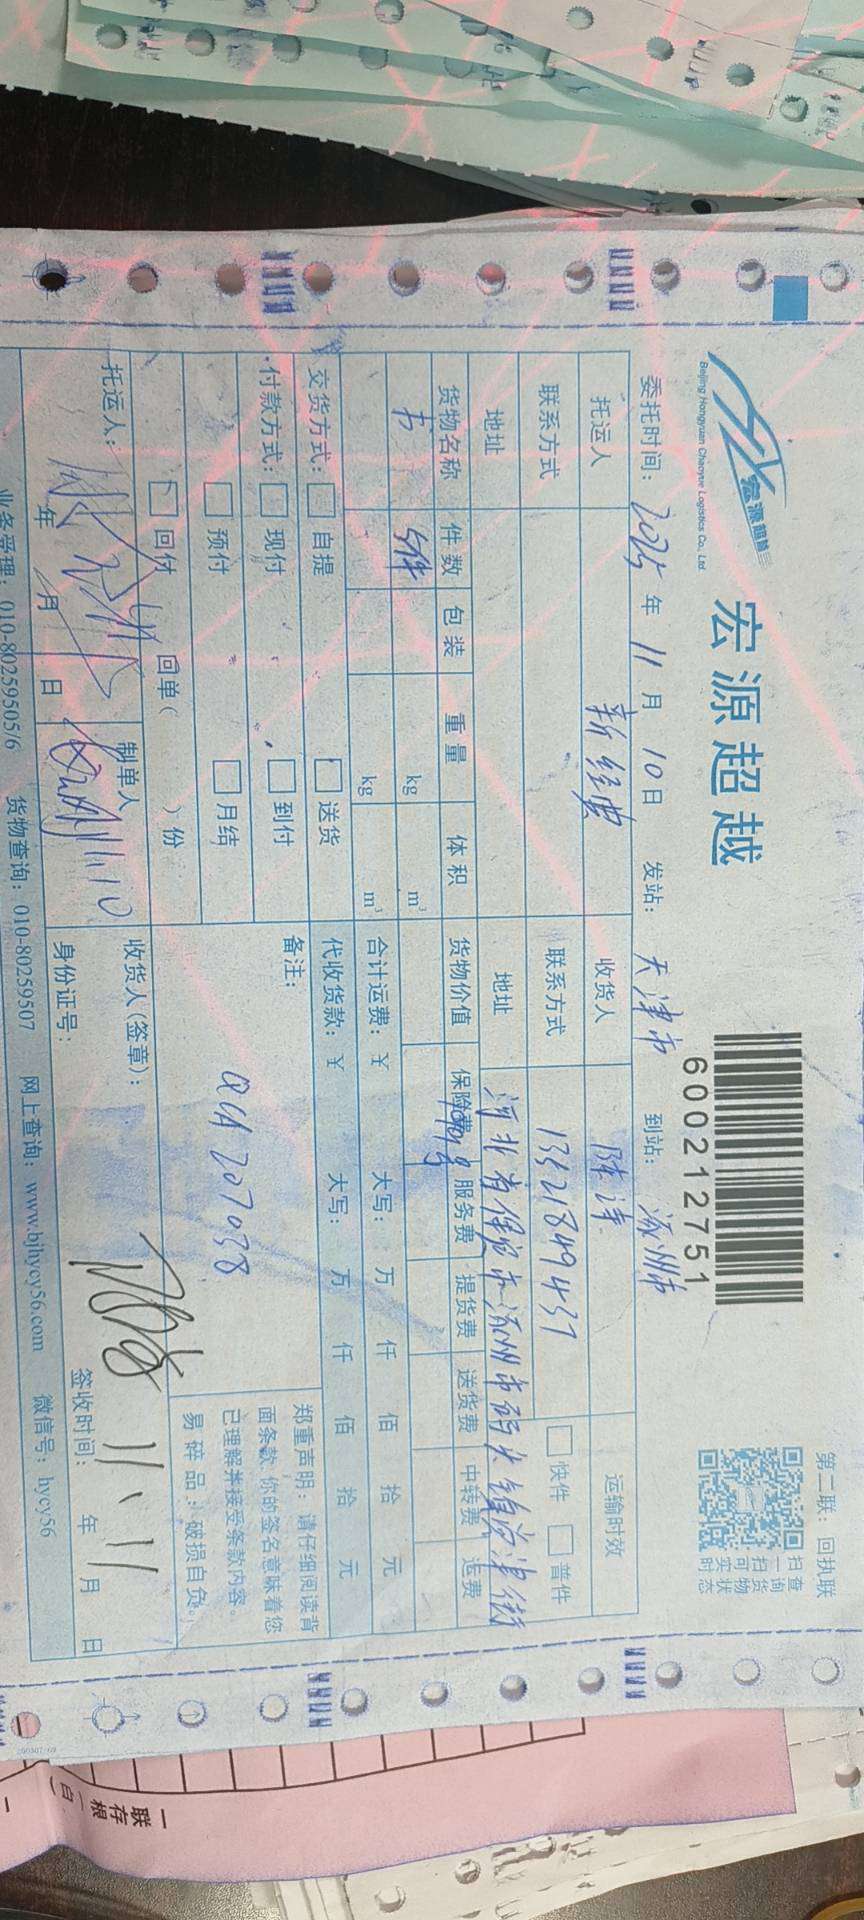 宏源超越
Beijing Hongyuan Chaoyue Logistics Co., Ltd.
宏源超越
600212751
第二联：回执联
扫一扫可实时
查询货物状态
委托时间：2025年11月10日 发站：天津市 到站：涿州市
托运人 新经典 收货人 陈涛 运输时效
联系方式 联系方式 13521849437 快件 普件
地址 地址 河北省保定市涿州市码头镇
货物名称 件数 包装 重量 体积 货物价值 保险费 服务费 提货费 送货费 中转费 运费
书 5件 kg m³
kg m³
合计运费：¥ 大写： 万 仟 佰 拾 元
交货方式： 自提 送货 代收货款：¥ 大写： 万 仟 佰 拾 元
付款方式： 现付 到付 备注：
预付 月结 QCA 207038
回付 回单( )份
郑重声明：请仔细阅读背
面条款 你的签名意味着您
已理解并接受条款内容。
易碎品：破损自负。
托运人： 制单人 11.10 收货人(签章)：
年 月 日 身份证号： 签收时间： 11.11 年 月 日
业务受理：010-80259505/6 货物查询：010-80259507 网上查询：www.bjhycy56.com 微信号：hycy56
联
存根
(白)
一